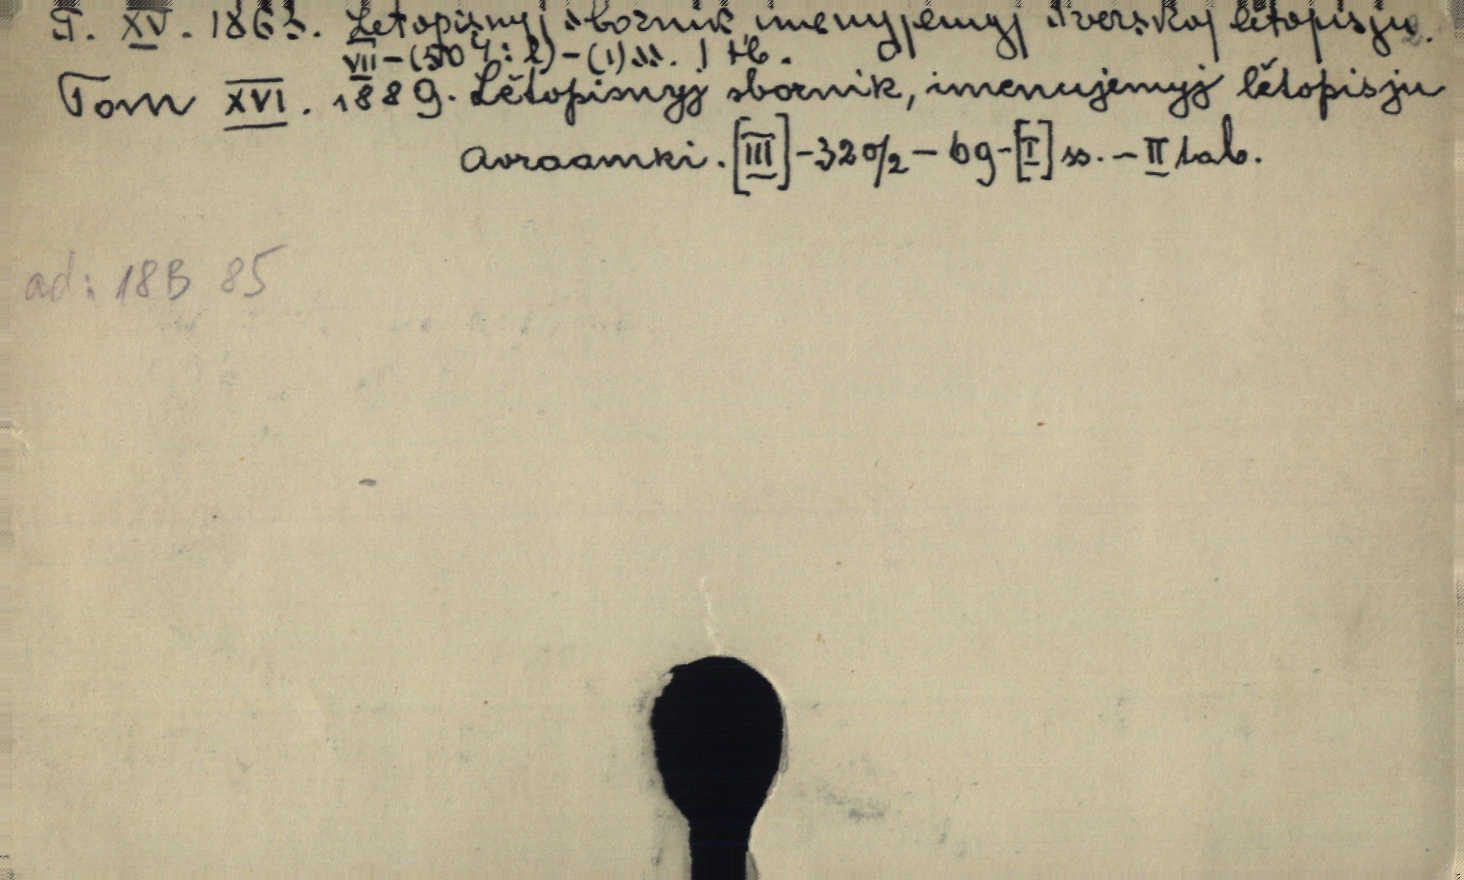 T. XV. 1863. Letopisnyj sbornik imenujemyj Tverskoj letopisju.
VII-(504:2)-(1) ss. 1 tb.
Tom XVI. 1889. Lětopisnyj sbornik, imenujemyj lětopisju
Avraamki. [III]-320/2-69-[I] ss.-II tab.
ad: 18B 85